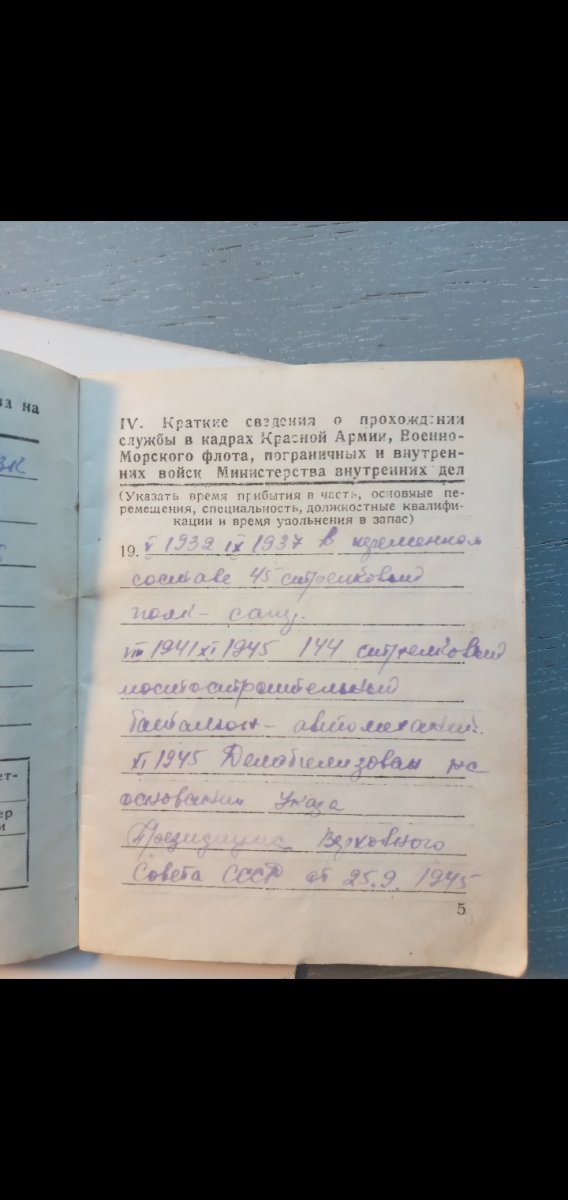 ва на
IV. Краткие сведения о прохождении
службы в кадрах Красной Армии, Военно-
Морского флота, пограничных и внутрен-
них войск Министерства внутренних дел
(Указать время прибытия в часть, основные пе-
ремещения, специальность, должностные квалифи-
кации и время увольнения в запас)
19. V 1932 IX 1937 в переменном
составе 45 стрелковый
полк -
1941 XI 1945 144 стрелковый
мостостроительный
батальон - автомеханик.
XI 1945 Демобилизован на
основании Указа
Президиума Верховного
Совета СССР от 25.9.1945
ет-
ер
и
5